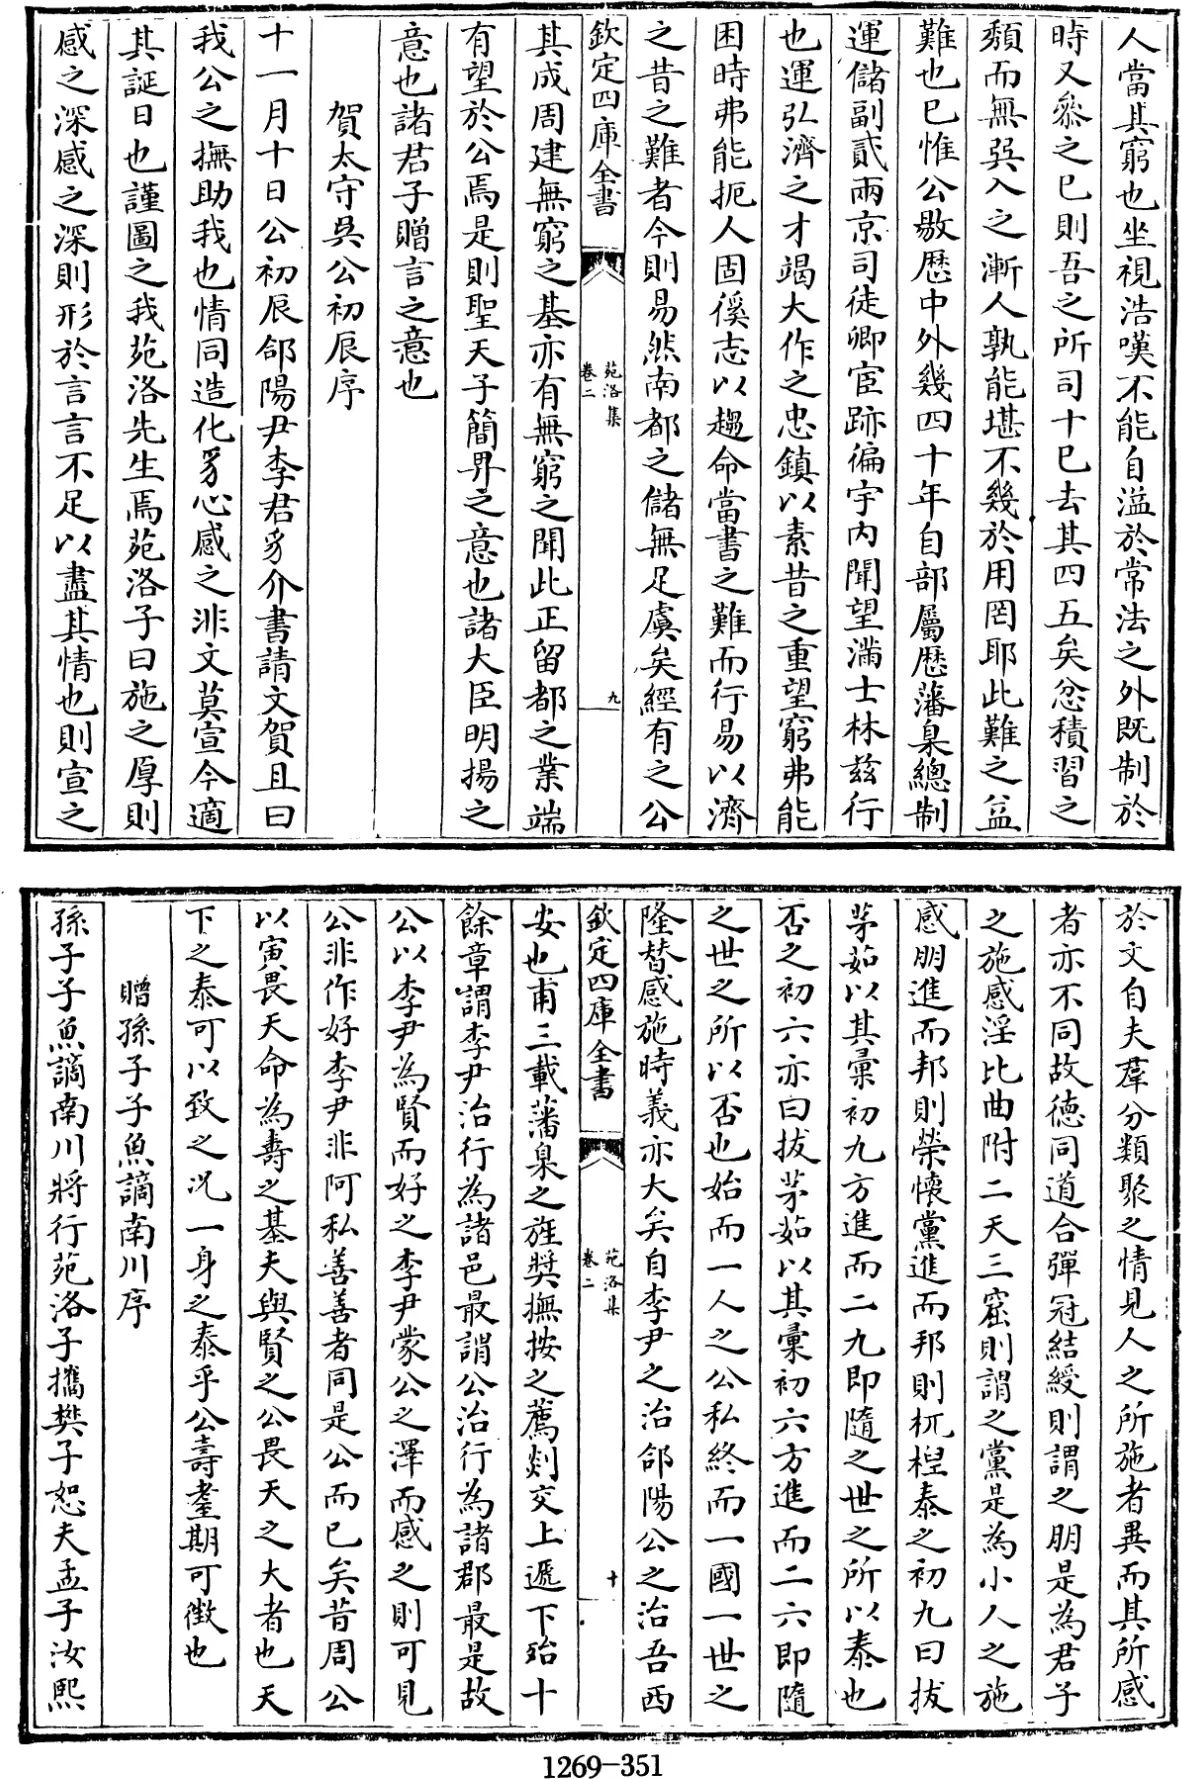 人當其窮也坐視浩嘆不能自溢於常法之外既制於
時又叅之已則吾之所司十已去其四五矣忿積習之
頹而無巽入之漸人孰能堪不幾於用罔耶此難之益
難也已惟公敭歷中外幾四十年自部屬歷藩臬總制
運儲副貳兩京司徒卿宦跡徧宇内聞望滿士林兹行
也運弘濟之才竭大作之忠鎮以素昔之重望窮弗能
困時弗能扼人固徯志以趨命當書之難而行易以濟
之昔之難者今則易然南都之儲無足虞矣經有之公
欽定四庫全書
苑洛集
卷二
九
其成周建無窮之基亦有無窮之聞此正留都之業端
有望於公焉是則聖天子簡畀之意也諸大臣明揚之
意也諸君子贈言之意也
賀太守吳公初辰序
十一月十日公初辰郃陽尹李君豸介書請文賀且曰
我公之撫助我也情同造化豸心感之非文莫宣今適
其誕日也謹圖之我苑洛先生焉苑洛子曰施之厚則
感之深感之深則形於言言不足以盡其情也則宣之
於文自夫羣分類聚之情見人之所施者異而其所感
者亦不同故德同道合彈冠結綬則謂之朋是為君子
之施感淫比曲附二天三窟則謂之黨是為小人之施
感朋進而邦則榮懷黨進而邦則杌梎泰之初九曰拔
茅茹以其彙初九方進而二九即隨之世之所以泰也
否之初六亦曰拔茅茹以其彙初六方進而二六即隨
之世之所以否也始而一人之公私終而一國一世之
隆替感施時義亦大矣自李尹之治郃陽公之治吾西
欽定四庫全書
苑洛集
卷二
十
安也甫三載藩臬之旌奬撫按之薦剡交上遞下殆十
餘章謂李尹治行為諸邑最謂公治行為諸郡最是故
公以李尹為賢而好之李尹蒙公之澤而感之則可見
公非作好李尹非阿私善善者同是公而已矣昔周公
以寅畏天命為壽之基夫與賢之公畏天之大者也天
下之泰可以致之况一身之泰乎公壽耋期可徴也
贈孫子子魚謫南川序
孫子子魚謫南川將行苑洛子攜樊子恕夫孟子汝熙
1269-351